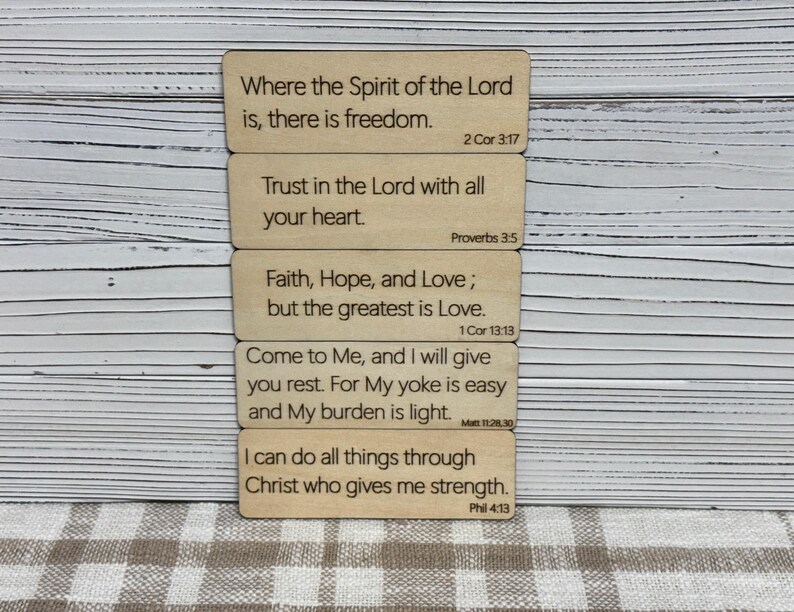 Where the Spirit of the Lord
is, there is freedom.
2 Cor 3:17
Trust in the Lord with all
your heart.
Proverbs 3:5
Faith, Hope, and Love ;
but the greatest is Love.
1 Cor 13:13
Come to Me, and I will give
you rest. For My yoke is easy
and My burden is light.
Matt 11:28,30
I can do all things through
Christ who gives me strength.
Phil 4:13